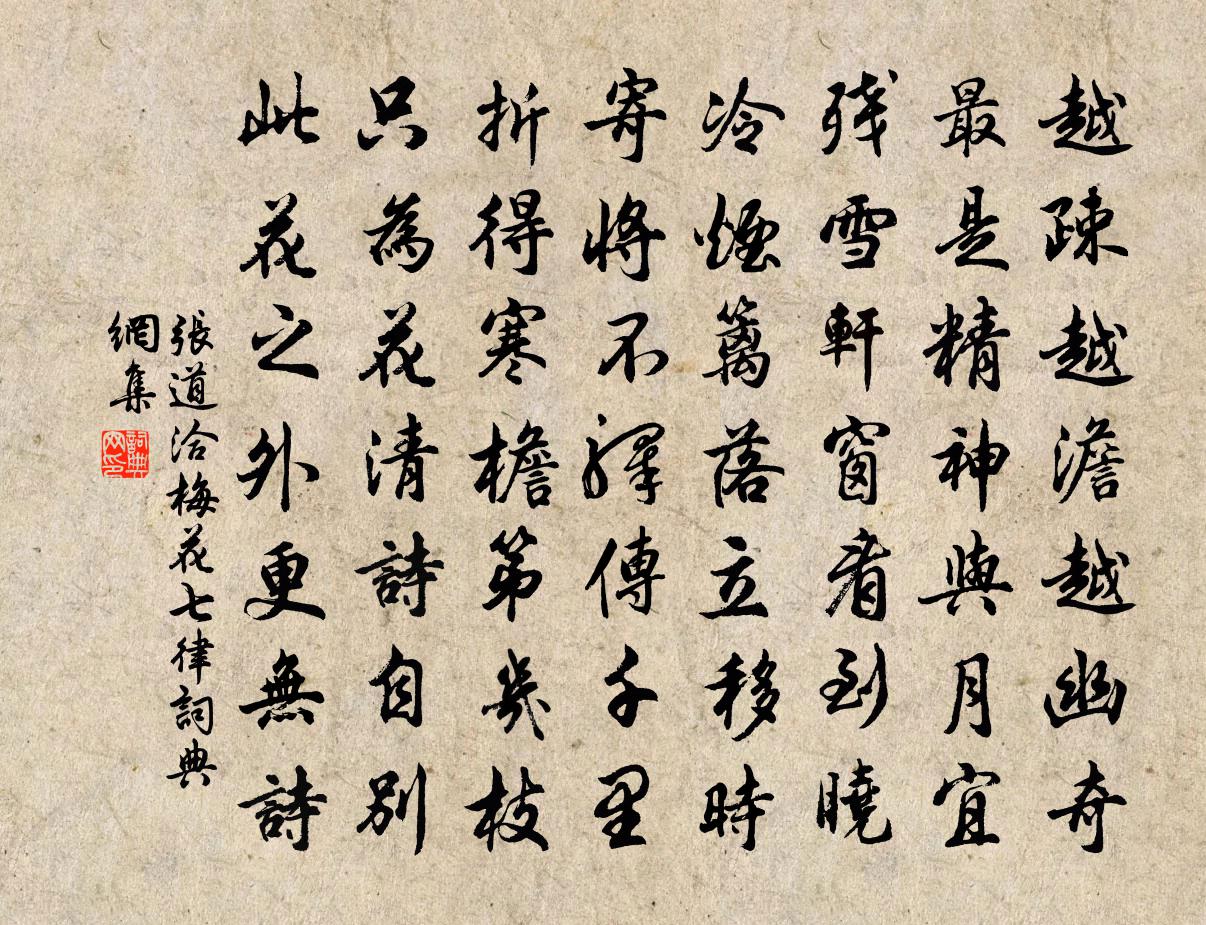 越疎越澹越幽奇
最是精神與月宜
残雪軒窗看到曉
冷煙篱落立移時
寄將不驛傳千里
折得寒檐第幾枝
只為花清詩自別
此花之外更無詩
張道洽梅花七律詞典
網集
詞典
网印